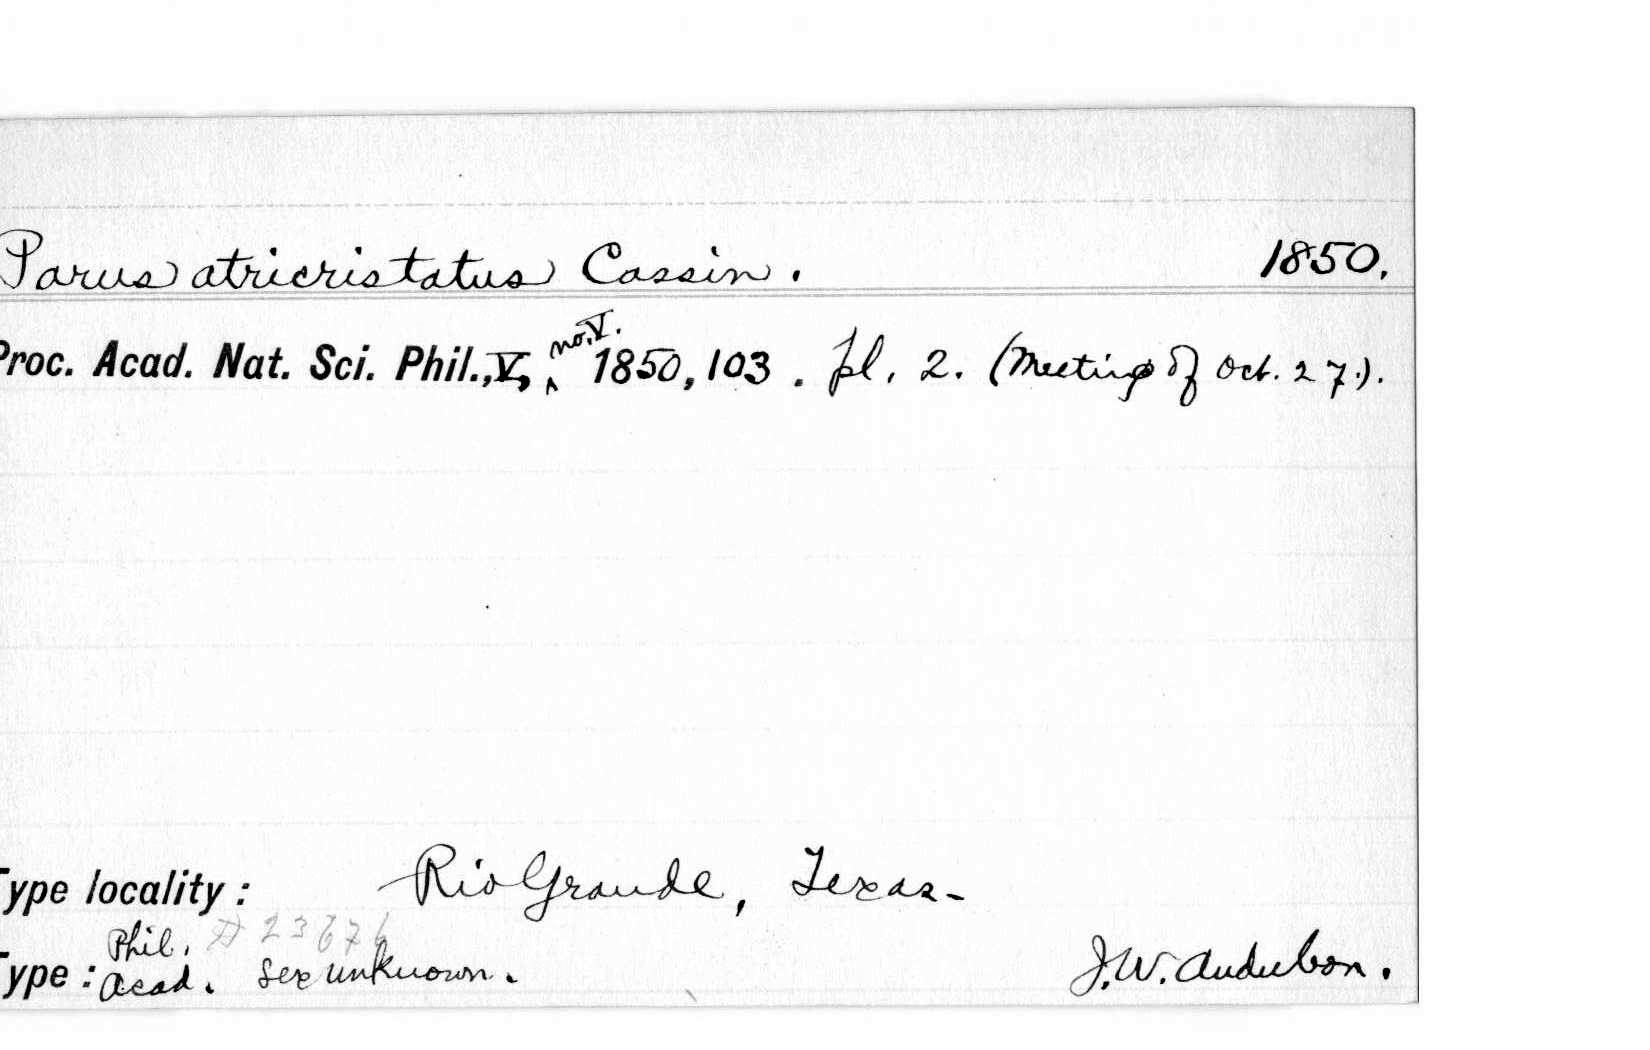 Parus atricristatus Cassin. 1850.
Proc. Acad. Nat. Sci. Phil., V, no. V. 1850, 103. pl. 2. (Meeting of Oct. 27.).
Type locality: Rio Grande, Texas-
Phil. # 23676
Type: Acad. Sex unknown. J. W. Audubon.